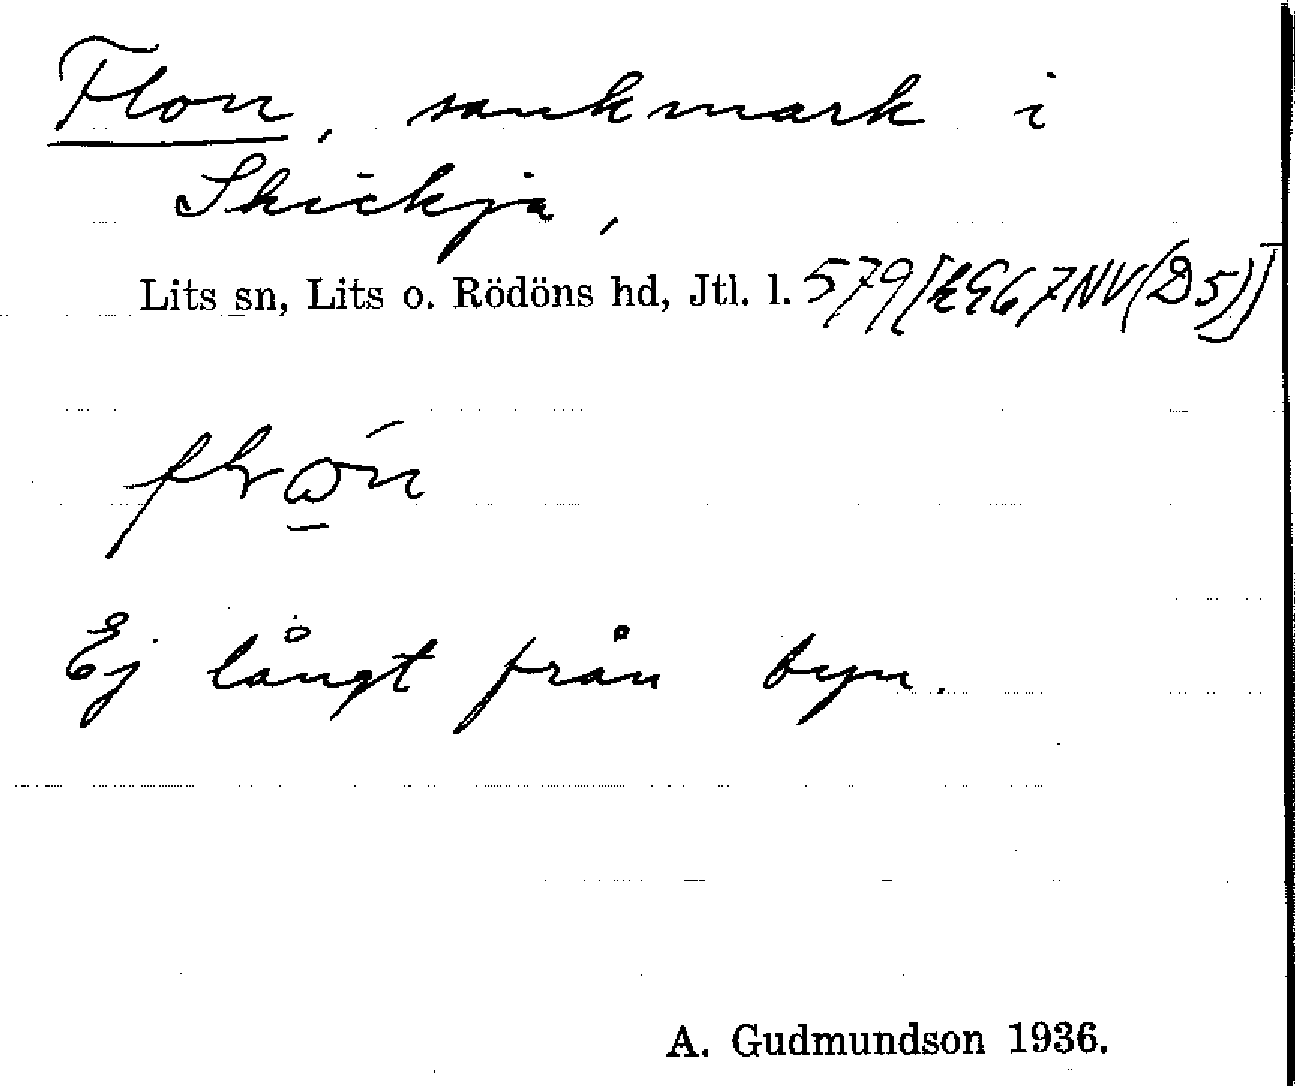 Flon, sankmark i
Skickja,
Lits sn, Lits o. Rödöns hd, Jtl. l. 579
Ej långt från byn.
A. Gudmundson 1936.